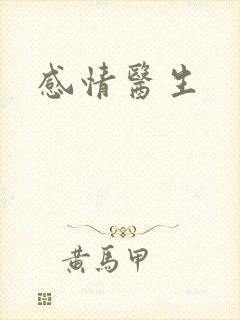 感情醫生
黄馬甲